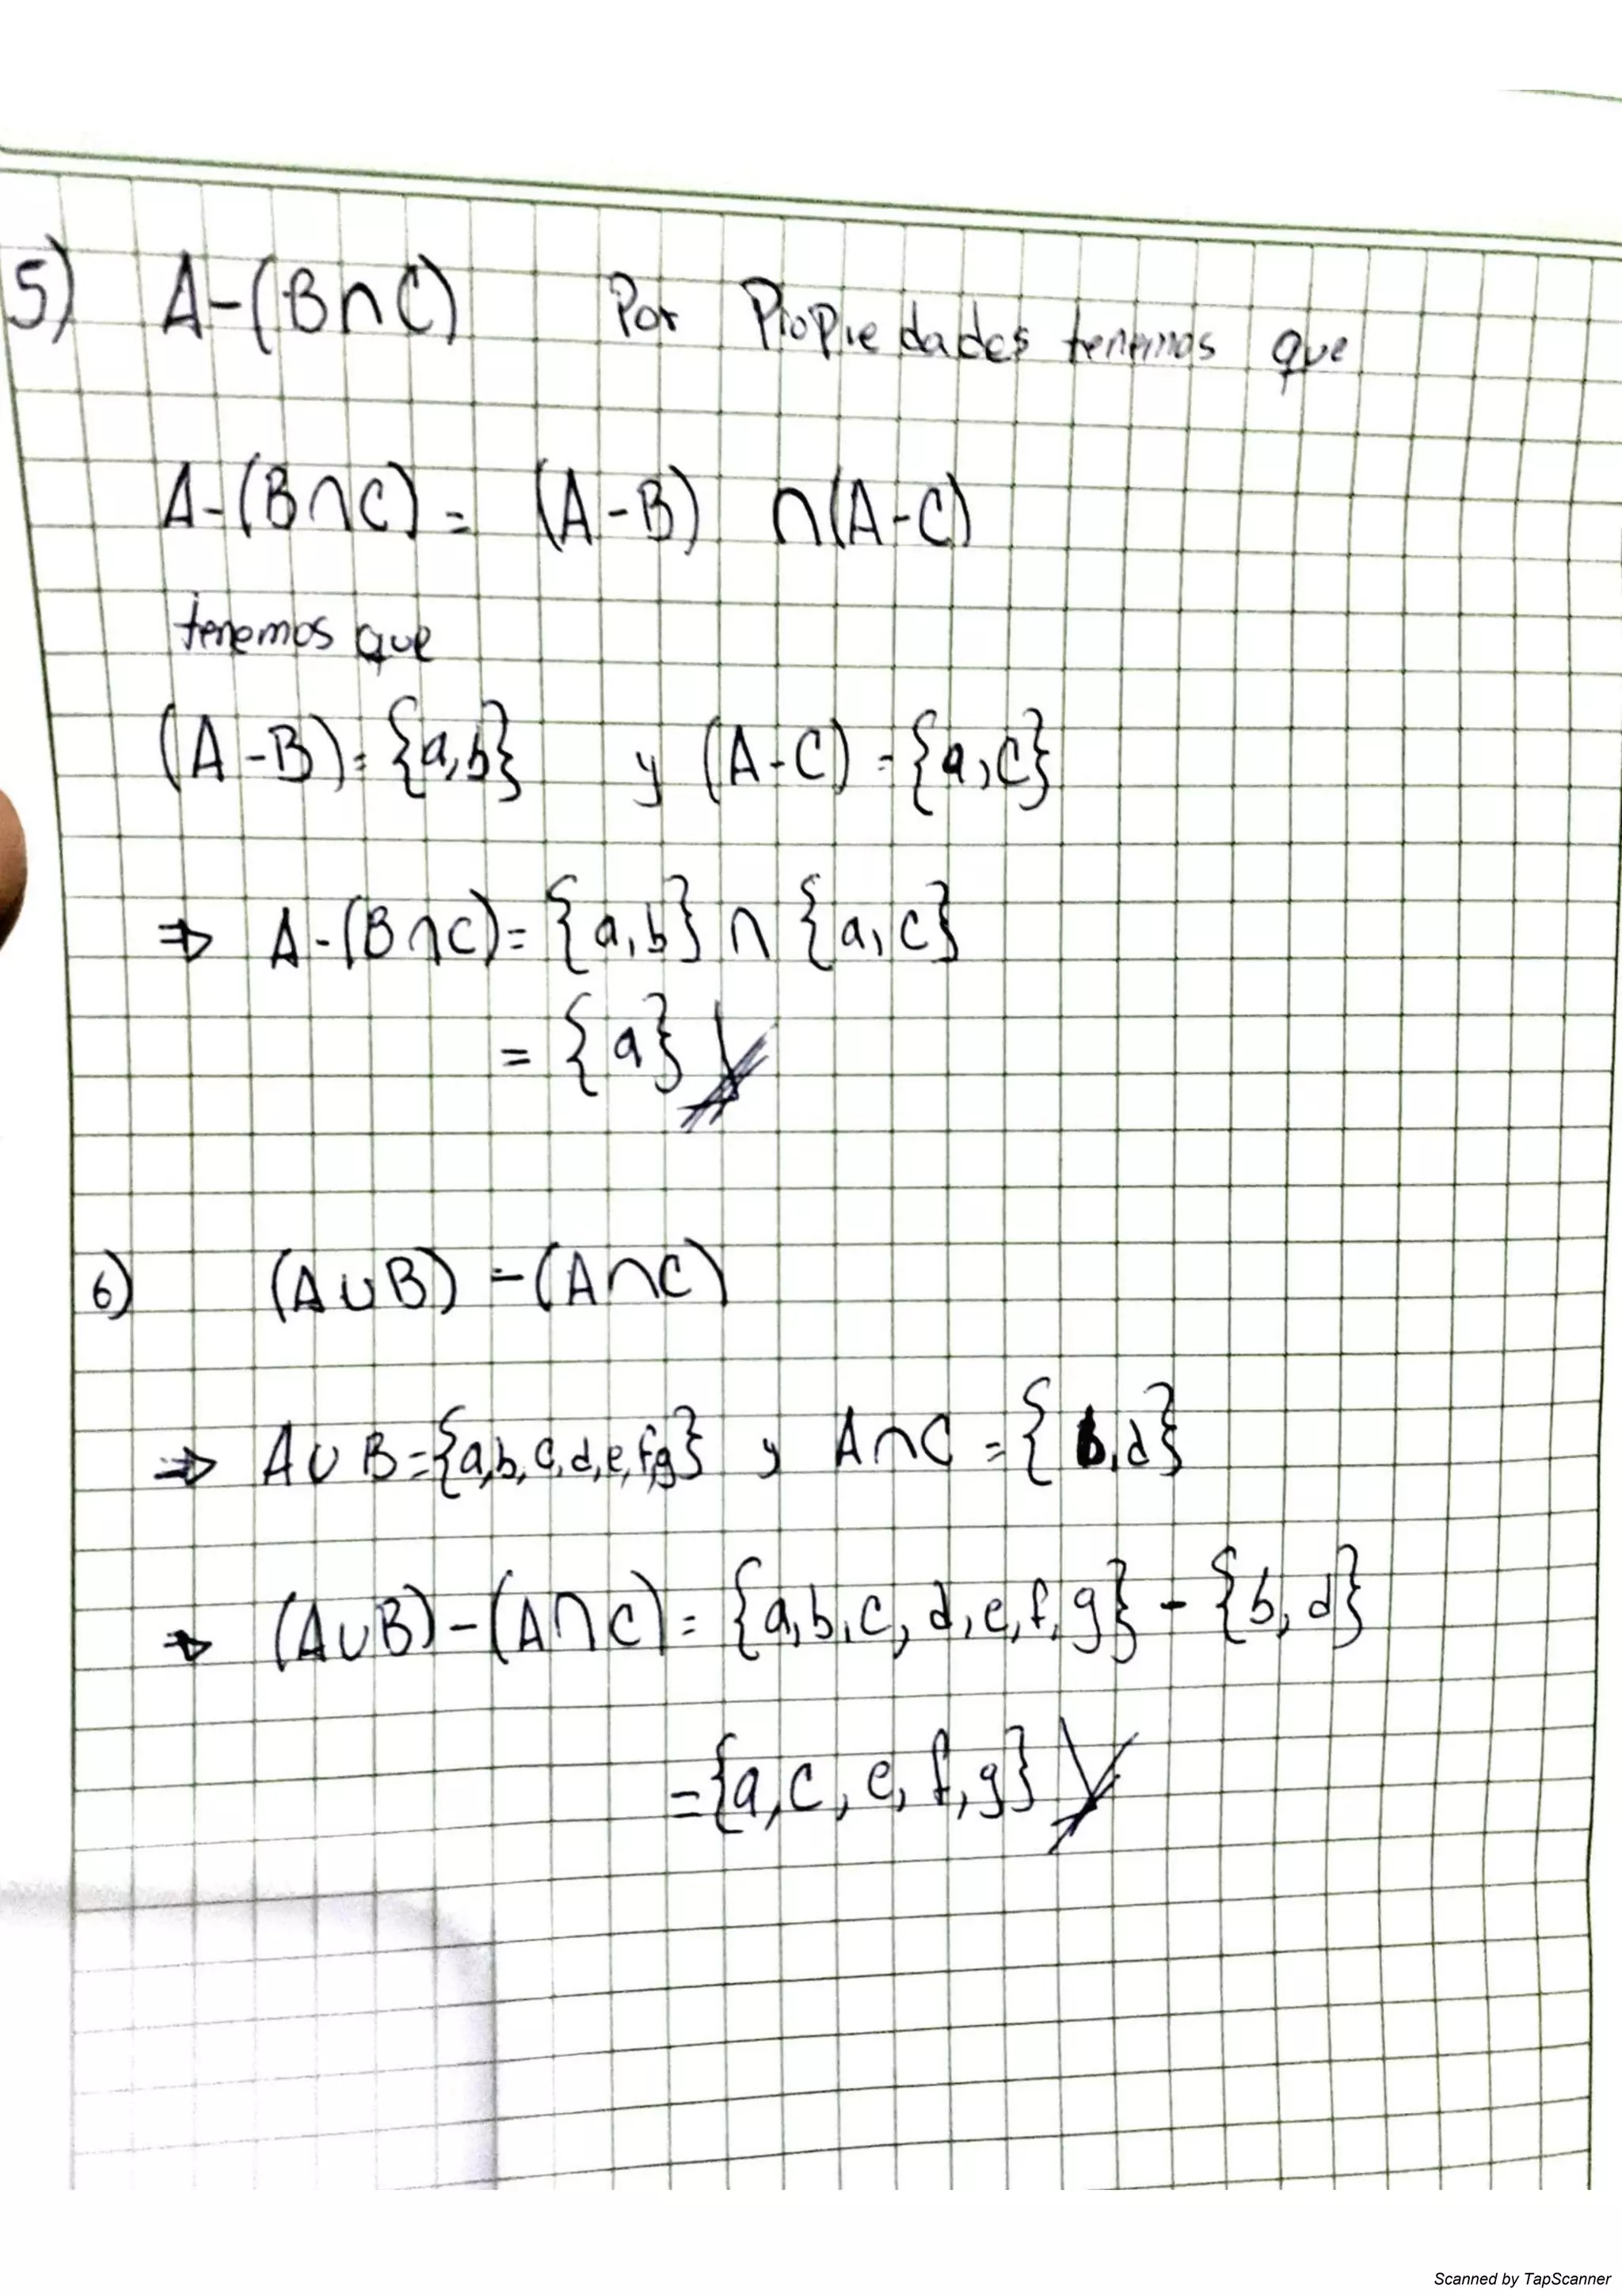 5) A-(B∩C) Por Propiedades tenemos que
A-(B∩C) = (A-B) ∩(A-C)
tenemos que
(A-B)={a,b} y (A-C)={a,c}
⇒ A-(B∩C)={a,b}∩{a,c}
= {a}
6) (A∪B)-(A∩C)
⇒ A∪B={a,b,c,d,e,f,g} y A∩C={b,d}
⇒ (A∪B)-(A∩C)={a,b,c,d,e,f,g}-{b,d}
={a,c,e,f,g}
Scanned by TapScanner